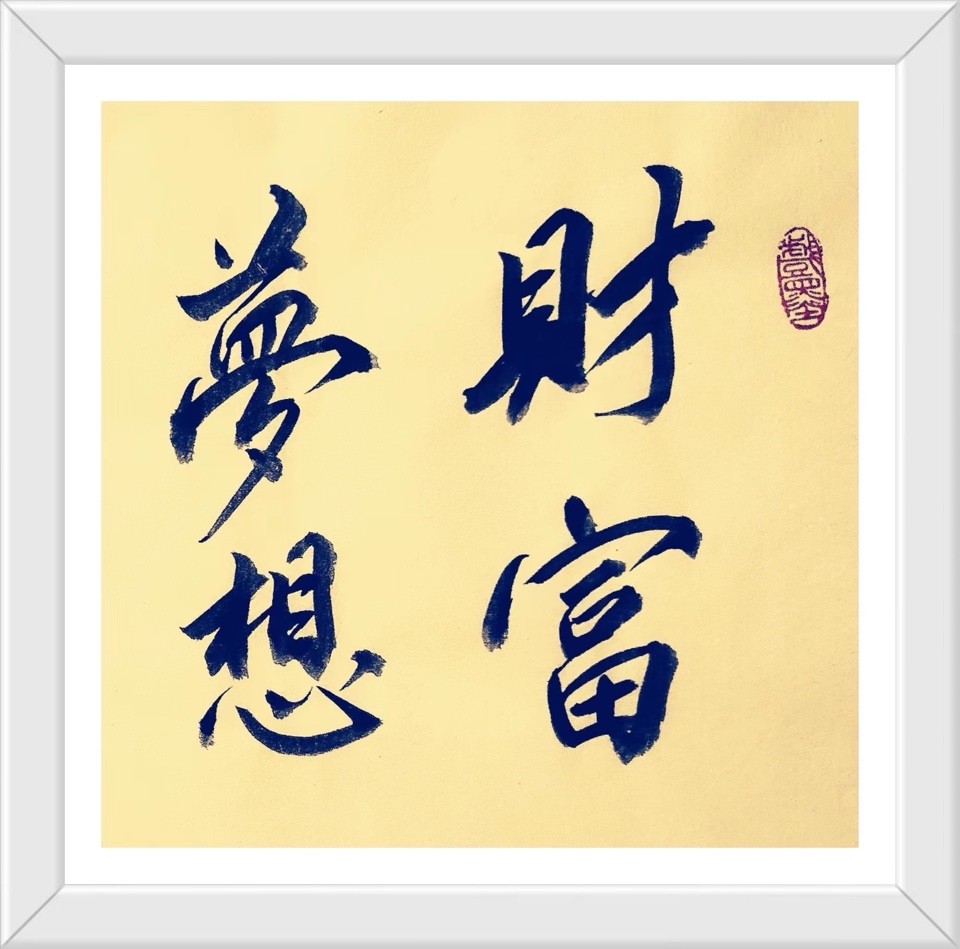 財富
夢想